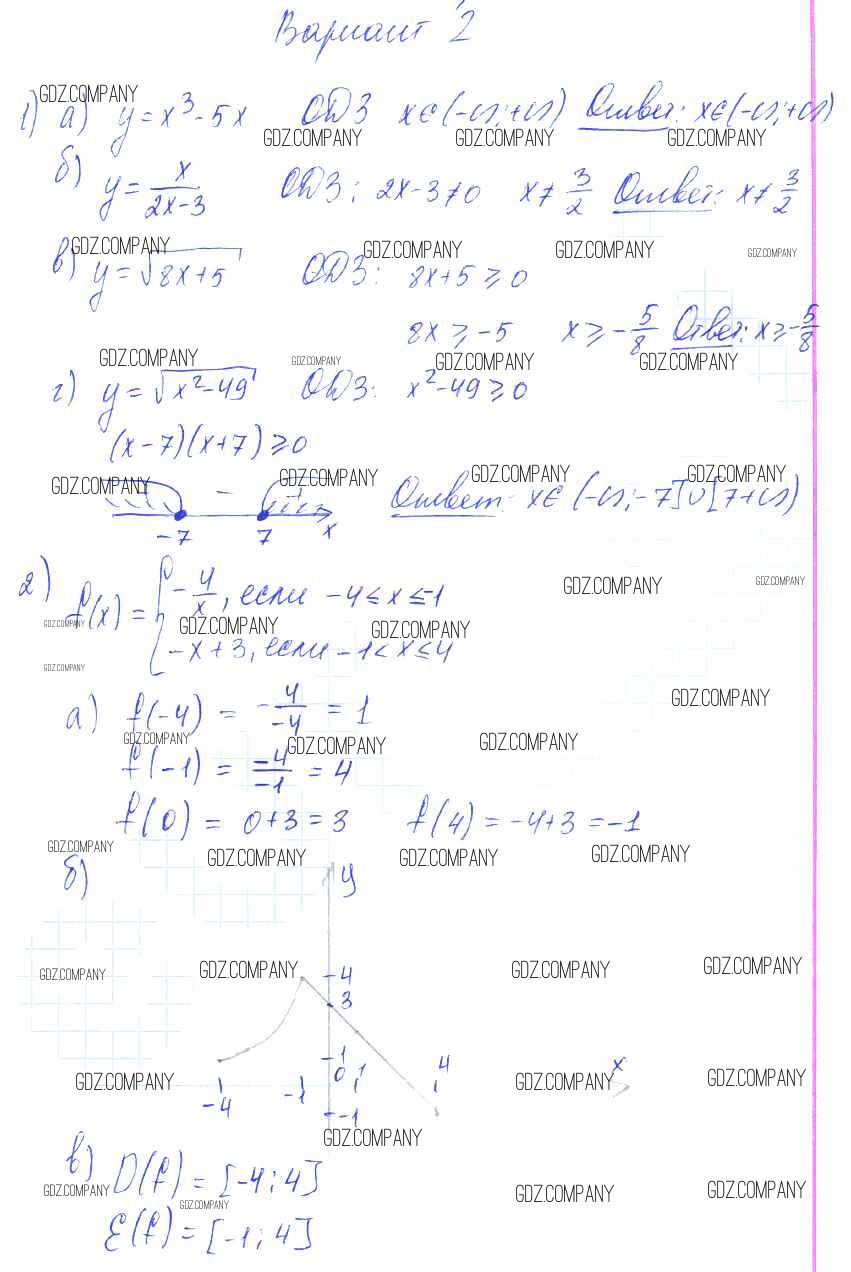 Вариант 2
GDZ.COMPANY
1) а) y = x³ - 5x ОДЗ x ∈ (-∞; +∞) Ответ: x ∈ (-∞; +∞)
GDZ.COMPANY GDZ.COMPANY GDZ.COMPANY
б) y = x/(2x-3) ОДЗ: 2x-3≠0 x≠ 3/2 Ответ: x≠ 3/2
GDZ.COMPANY GDZ.COMPANY GDZ.COMPANY GDZ.COMPANY
в) y = √(8x+5) ОДЗ: 8x+5 ⩾ 0
8x ⩾ -5 x ⩾ -5/8 Ответ: x ⩾ -5/8
GDZ.COMPANY GDZ.COMPANY GDZ.COMPANY GDZ.COMPANY
г) y = √(x²-49) ОДЗ: x²-49 ⩾ 0
(x-7)(x+7) ⩾ 0
GDZ.COMPANY GDZ.COMPANY GDZ.COMPANY GDZ.COMPANY
- + Ответ: x ∈ (-∞; -7] ∪ [7 +∞)
-7 7 x
2) f(x) = { -4/x, если -4 ≤ x ≤ -1
GDZ.COMPANY GDZ.COMPANY
GDZ.COMPANY GDZ.COMPANY GDZ.COMPANY
-x+3, если -1 < x ≤ 4
GDZ.COMPANY
GDZ.COMPANY
а) f(-4) = -4/-4 = 1
GDZ.COMPANY GDZ.COMPANY GDZ.COMPANY
f(-1) = -4/-1 = 4
f(0) = 0+3 = 3 f(4) = -4+3 = -1
GDZ.COMPANY GDZ.COMPANY GDZ.COMPANY GDZ.COMPANY
б) y
GDZ.COMPANY GDZ.COMPANY 4 GDZ.COMPANY GDZ.COMPANY
3
1
0 1 4 x
GDZ.COMPANY GDZ.COMPANY GDZ.COMPANY
-4 -1
-1
GDZ.COMPANY
в) D(f) = [-4; 4]
GDZ.COMPANY GDZ.COMPANY GDZ.COMPANY GDZ.COMPANY
E(f) = [-1; 4]